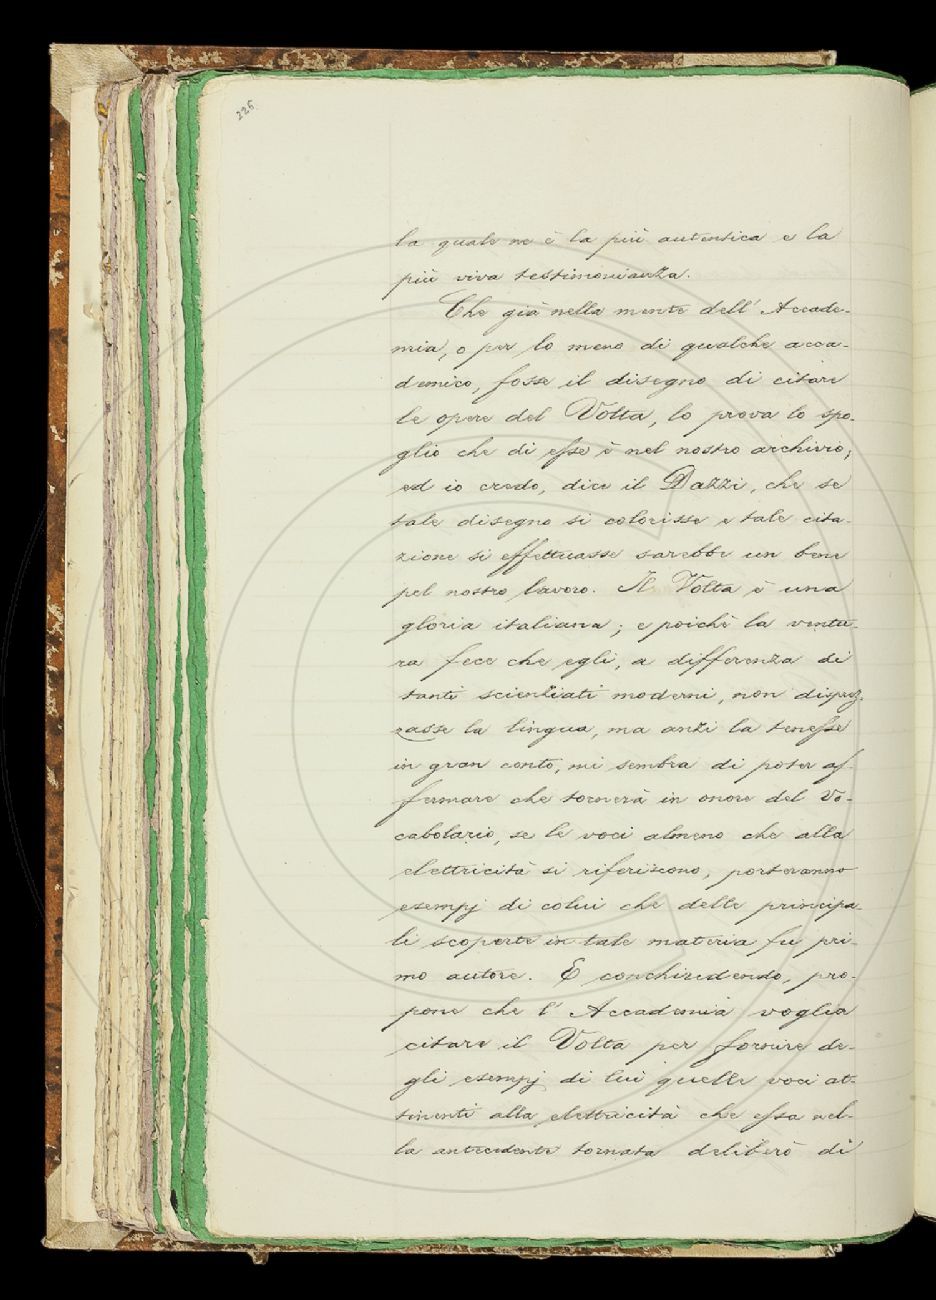 226.
la quale ne è la più autentica e la
più viva testimonianza.
Che già nella mente dell' Accade-
mia, o per lo meno di qualche acca-
demico, fosse il disegno di citare
le opere del Volta, lo prova lo spo-
glio che di esse è nel nostro archivio;
ed io credo, dice il Dazzi, che se
tale disegno si colorisse e tale cita-
zione si effettuasse sarebbe un bene
pel nostro lavoro. Il Volta è una
gloria italiana; e poichè la ventu-
ra fece che egli, a differenza di
tanti scienziati moderni, non disprez-
zasse la lingua, ma anzi la tenesse
in gran conto, mi sembra di poter af-
fermare che tornerà in onore del Vo-
cabolario, se le voci almeno che alla
elettricità si riferiscono, porteranno
esempj di colui che delle principa-
li scoperte in tale materia fu pri-
mo autore. E conchiudendo, pro-
pone che l' Accademia voglia
citare il Volta per fornire de-
gli esempj di lui quelle voci at-
tinenti alla elettricità che essa nel-
la antecedente tornata deliberò di